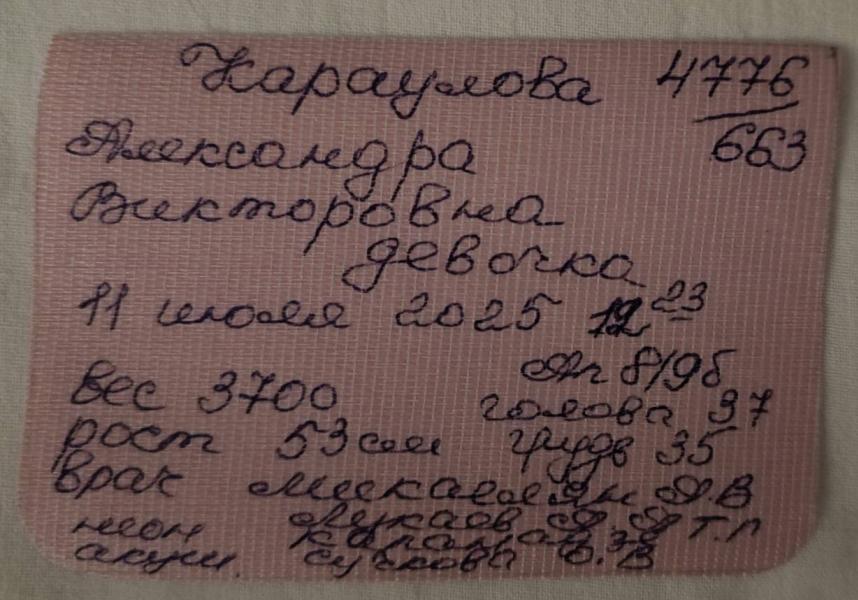 Караулова 4776
Александра 663
Викторовна
девочка
11 июля 2025 12 23
Ап 8/9б
вес 3700 голова 37
рост 53 см грудь 35
врач Микаелян А.В
неон Лукаев А. А Т.Л
акуш. Сучкова О. В